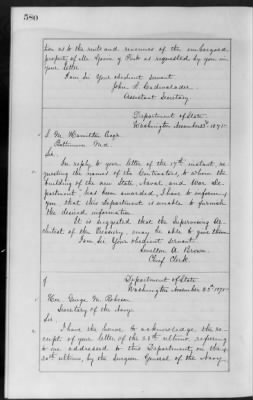 580
tion as to the rents and revenues of the embargoed
property of Mr Govin y Pinto as requested by you in
your letter
I am Sir Your obedient servant
John L. Cadwalader
Assistant Secretary
Department of State
Washington November 23d 1875
S. M. Hamilton Esqr
Baltimore Md.
Sir
In reply to your letter of the 17th instant, re-
questing the names of the Contractors, to whom the
building of the new State, Naval, and War De-
partment has been awarded, I have to inform
you that this Department is unable to furnish
the desired information.
It is suggested that the Supervising Ar-
chitect of the Treasury may be able to give them
I am Sir Your obedient servant
Sevellon A. Brown
Chief Clerk.
Department of State
Washington November 23d 1875
Hon. George M. Robeson
Secretary of the Navy.
Sir
I have the honor to acknowledge the re-
ceipt of your letter of the 21st ultimo referring
to one addressed to this Department, on the
20th ultimo, by the Surgeon General of the Navy